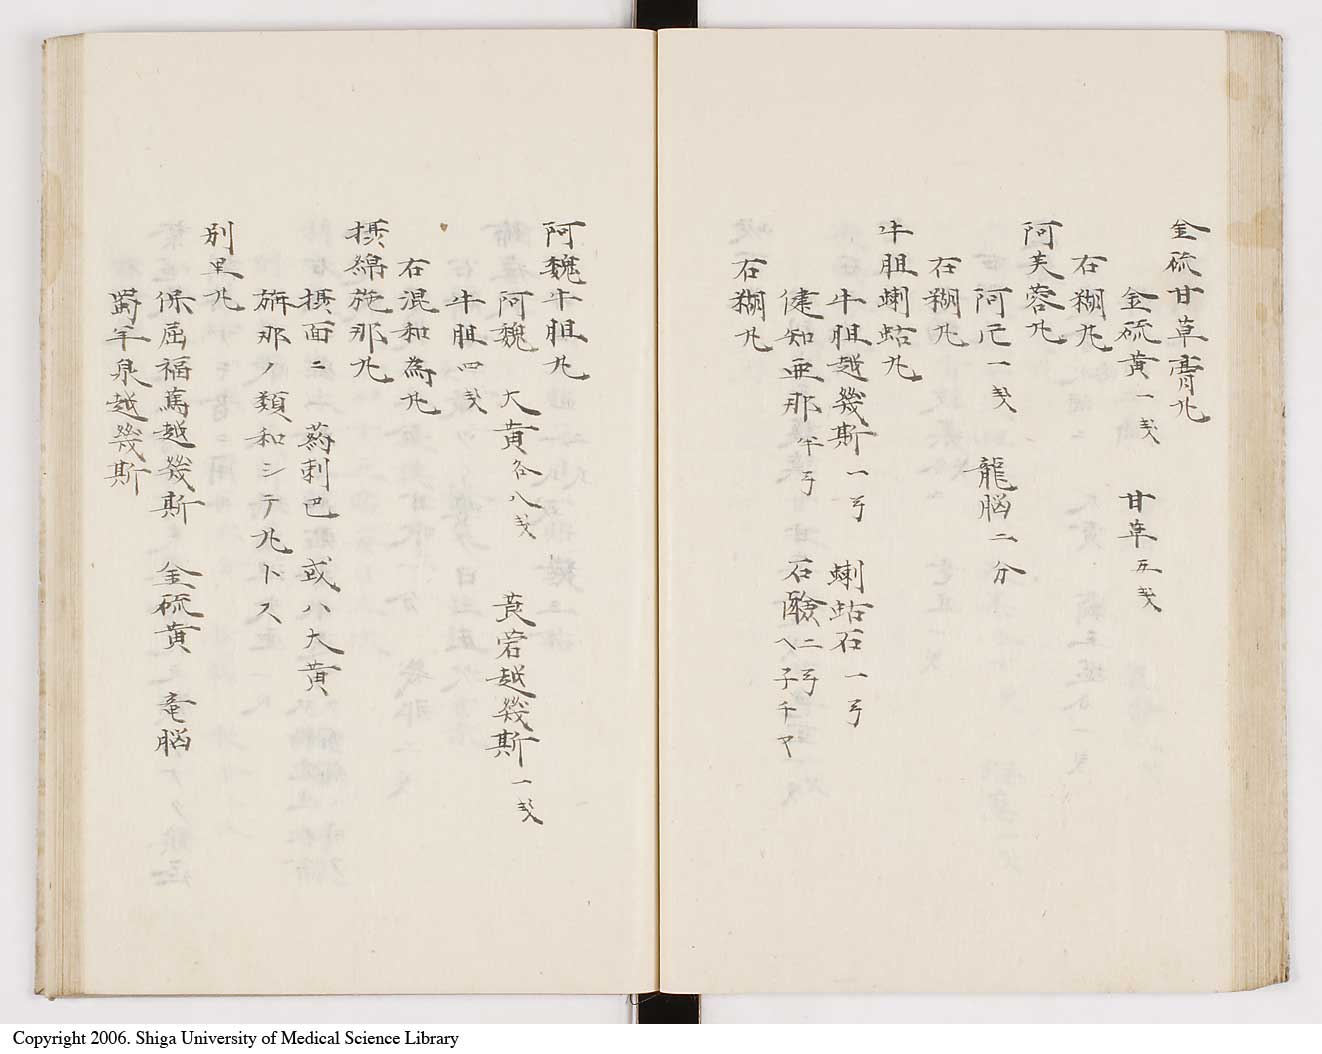 金硫甘草膏丸
金硫黄一戔 甘草五戔
右糊丸
阿芙蓉丸
阿片一戔 龍脳二分
右糊丸
牛胆蝲蛄丸
牛胆越幾斯一弓 蝲蛄石一弓
健知亜那半弓 石鹸二弓
石糊丸
阿魏牛胆丸
阿魏 大黄各八戔 莨菪越幾斯一戔
牛胆四戔
右混和為丸
摂綿施那丸
摂面ニ 葯刺巴 或ハ大黄
旃那ノ類和シテ丸トス
別里丸
保屈福篤越幾斯 金硫黄 竜脳
羊泉越幾斯
Copyright 2006. Shiga University of Medical Science Library